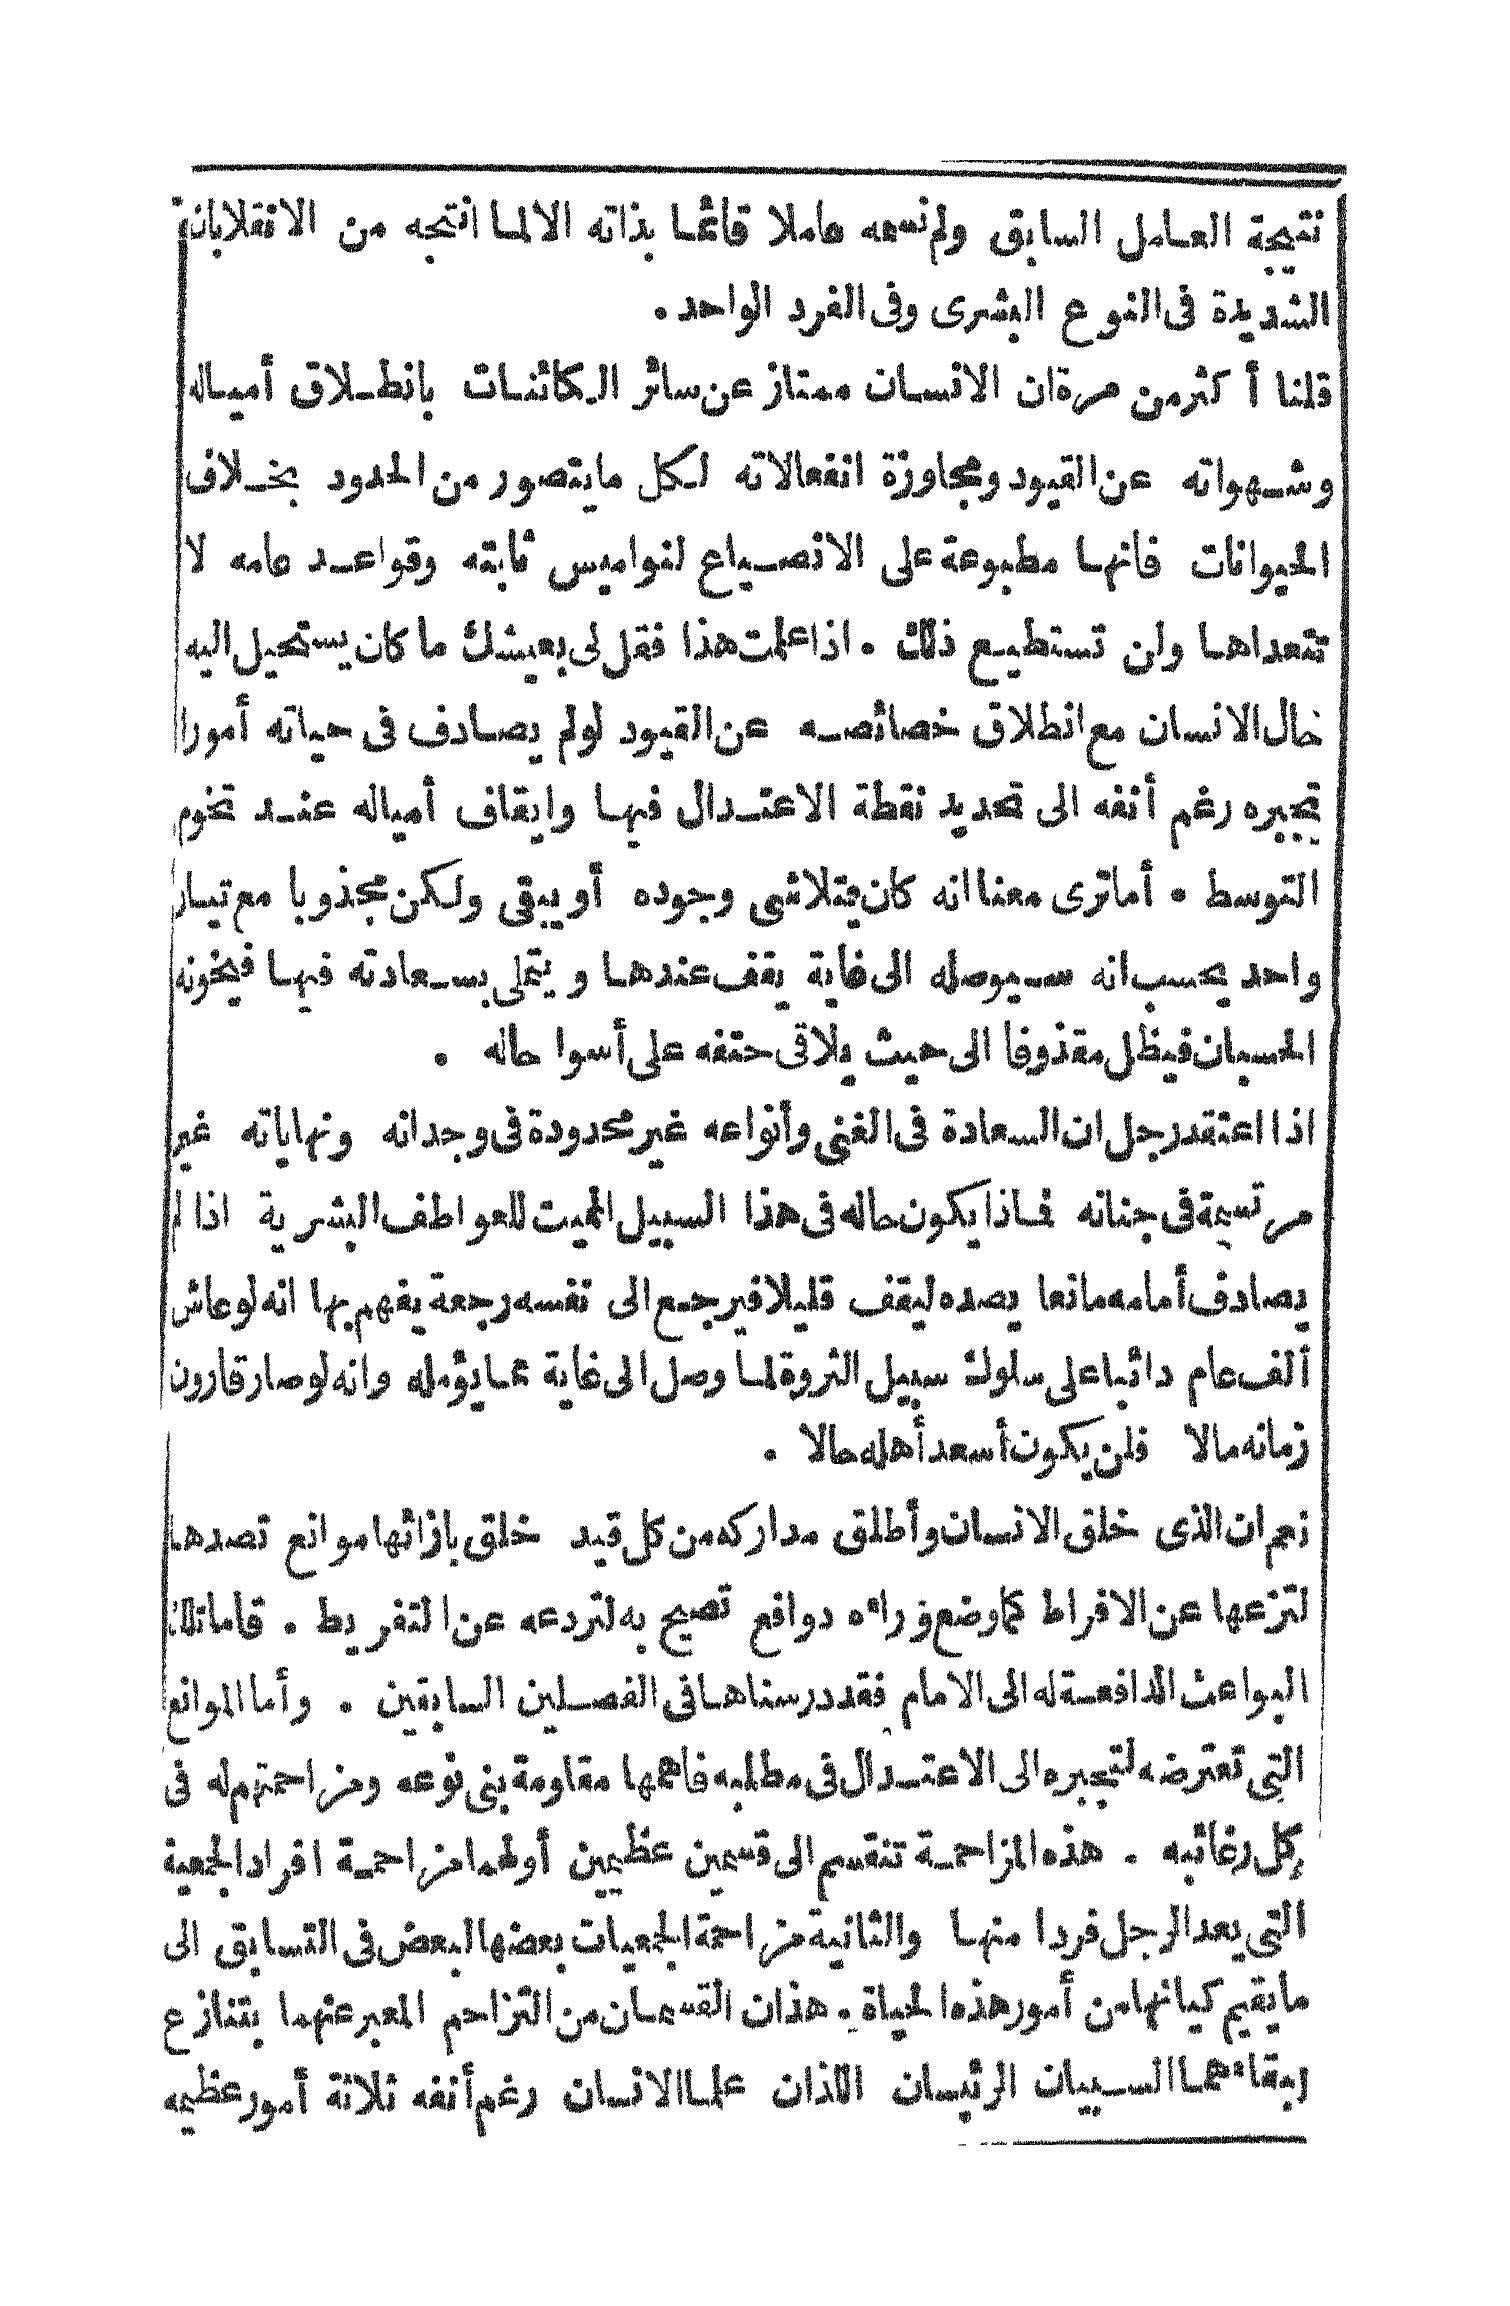 نتيجة العامل السابق ولم نسمه عاملا قائما بذاته الا لما انتجه من الانقلابات
الشديدة فى النوع البشرى وفى الفرد الواحد .
قلنا أكثر من مرة ان الانسان ممتاز عن سائر الكائنات بانطلاق أمياله
وشهواته عن القيود ومجاوزة انفعالاته لكل مايتصور من الحدود بخلاف
الحيوانات فانها مطبوعة على الانصياع لنواميس ثابته وقواعد عامه لا
تتعداها ولن تستطيع ذلك . اذا علمت هذا فقل لى بعيشك ما كان يستحيل اليه
حال الانسان مع انطلاق خصائصه عن القيود لو لم يصادف فى حياته أمورا
تجبره رغم أنفه الى تحديد نقطة الاعتدال فيها وايقاف أمياله عند تخوم
التوسط . أما ترى معنا انه كان يتلاشى وجوده أو يبقى ولكن مجذوبا مع تيار
واحد يحسب انه سيوصله الى غاية يقف عندها ويتملى بسعادته فيها فيخونه
الحسبان فيظل مقذوفا الى حيث يلاقى حتفه على أسوا حاله .
اذا اعتقد رجل ان السعادة فى الغنى وأنواعه غير محدودة فى وجدانه ونهاياته غير
مرتسمة فى جنانه فماذا يكون حاله فى هذا السبيل المميت للعواطف البشرية اذا لم
يصادف أمامه مانعا يصده ليقف قليلا فيرجع الى نفسه رجعة يفهم بها انه لو عاش
ألف عام دائبا على سلوك سبيل الثروة لما وصل الى غاية مما يؤمله وانه لو صار قارون
زمانه مالا فلن يكون أسعد أهله حالا .
نعم ان الذى خلق الانسان وأطلق مداركه من كل قيد خلق بازائها موانع تصدها
لتزعها عن الافراط كما وضع وراءه دوافع تصيح به لتردعه عن التفريط . فاما تلك
البواعث الدافعة له الى الامام فقد درسناها فى الفصلين السابقين . وأما الموانع
التى تعترضه لتجبره الى الاعتدال فى مطلبه فاهمها مقاومة بنى نوعه ومزاحمتهم له فى
كل رغائبه . هذه المزاحمة تنقسم الى قسمين عظيمين أولهما مزاحمة افراد الجمعية
التى يعد الرجل فردا منها والثانية مزاحمة الجمعيات بعضها لبعض فى التسابق الى
ما يقيم كيانها من أمور هذه الحياة . هذان القسمان من التزاحم المعبر عنهما بتنازع
البقاء هما السببان الرئيسان اللذان علما الانسان رغم أنفه ثلاثة أمور عظيمه